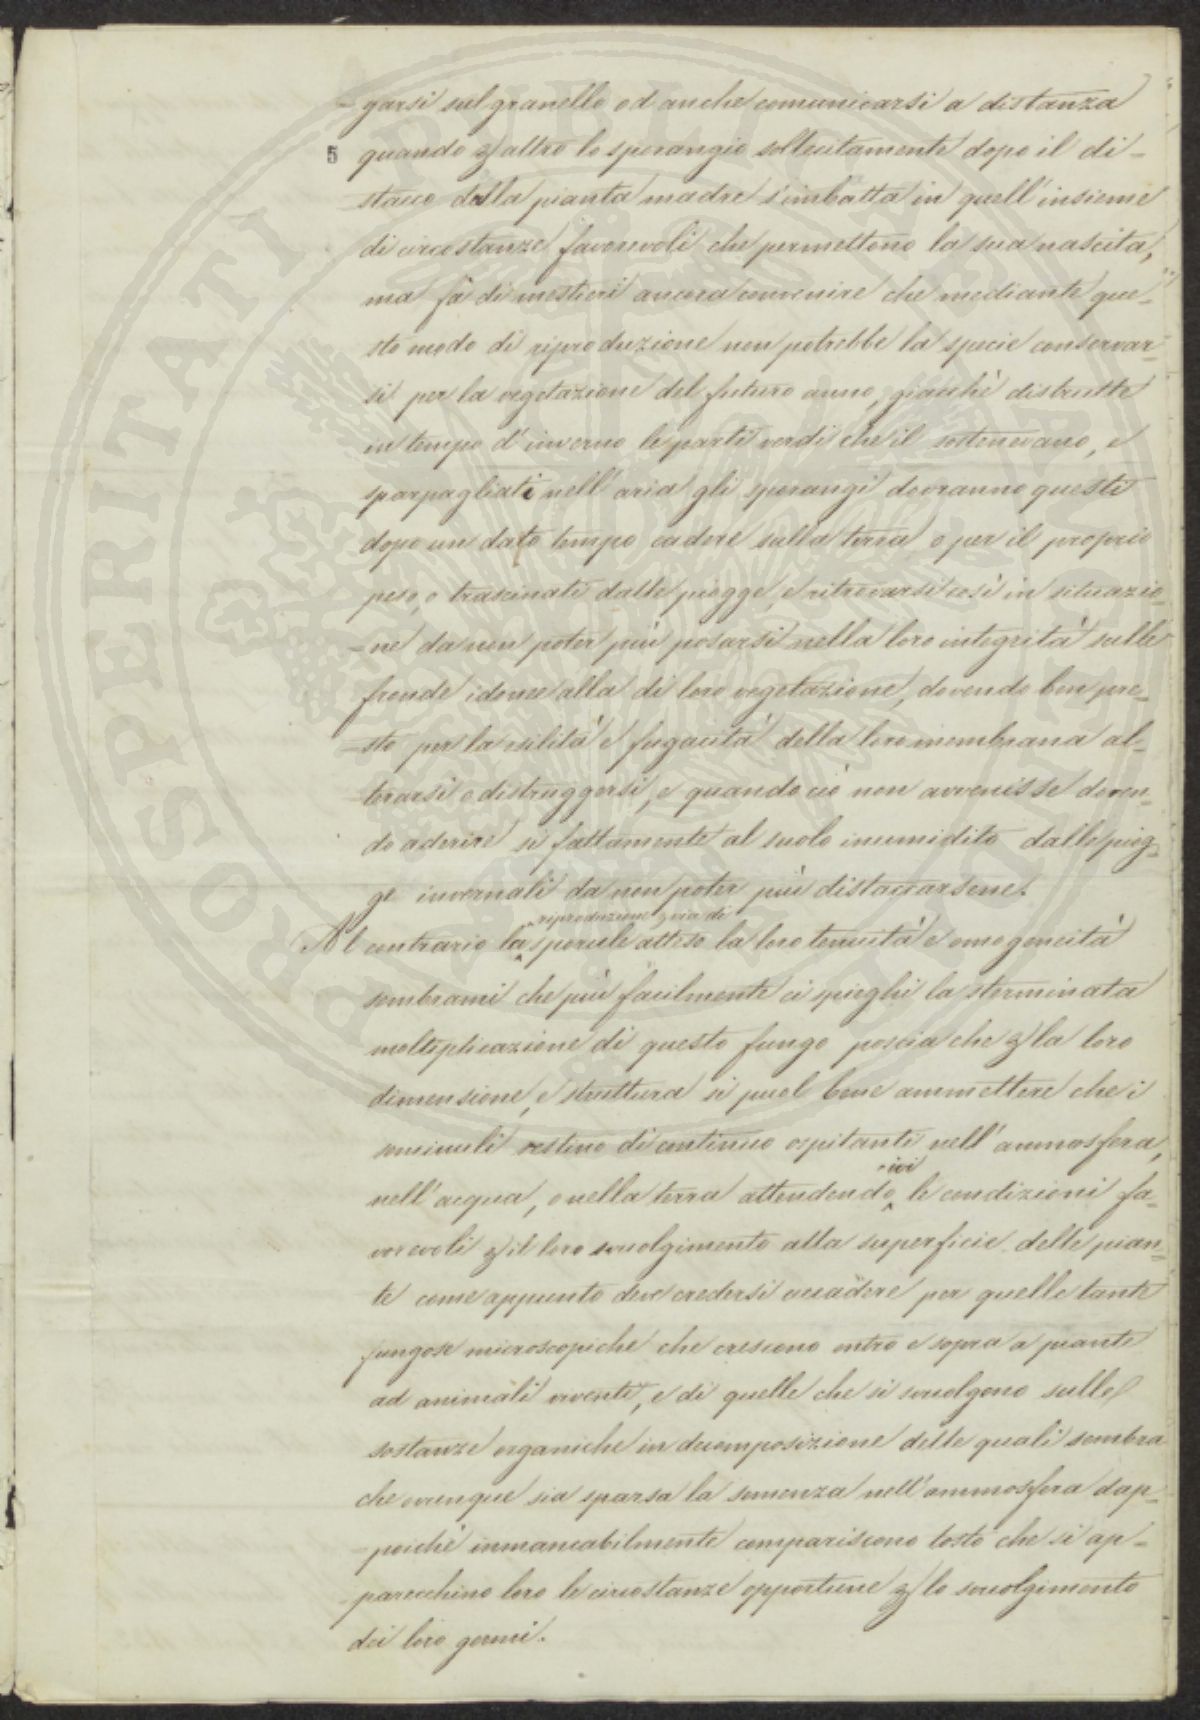 -garsi sul granello od anche comunicarsi a distanza
5 quando p altro lo sporangio sollecitamente dopo il di-
stacco dalla pianta madre s'imbatta in quell'insieme
di circostanze favorevoli che permettono la sua nascita,
ma fà di mestieri ancora convenire che mediante que-
sto modo di riproduzione non potrebbe la specie conservar-
si per la vegetazione del futuro anno, giacchè distrutte
in tempo d'inverno le parti verdi che il sostenevano, e
sparpagliati nell'aria gli sporangi dovranno questi
dopo un dato tempo cadere sulla terra o per il proprio
peso, o trascinati dalle piogge, e ritrovarsi così in situazio-
-ne da non poter più posarsi nella loro integrità sulle
fronde idonee alla di loro vegetazione, dovendo ben pre-
-sto per la esilità e fugacità della loro membrana al-
terarsi o distruggersi, e quando ciò non avvenisse doven-
do aderire sì fattamente al suolo inumidito dalle piog-
ge invernali da non poter più distaccarsene.
riproduzione p via di
Al contrario la sporule atteso la loro tenuità e omogeneità
sembrami che più facilmente ci spieghi la sterminata
moltiplicazione di questo fungo poscia che p la loro
dimensione, e struttura si puol bene ammettere che i
seminuli restino di continuo ospitanti nell'ammosfera,
ivi
nell'acqua, o nella terra attendendo le condizioni fa-
vorevoli p il loro svuolgimento alla superficie delle pian-
te come appunto deve credersi accadere per quelle tante
fungose microscopiche che crescono entro e sopra a piante
ad animali viventi, e di quelle che si svuolgono sulle
sostanze organiche in decomposizione delle quali sembra
che ovunque sia sparsa la semenza nell'ammosfera dap-
-poichè immancabilmente compariscono tosto che si ap-
parecchino loro le circostanze opportune p lo svuolgimento
dei loro germi.
PROSPERITATI PUBLICAE AUGENDAE